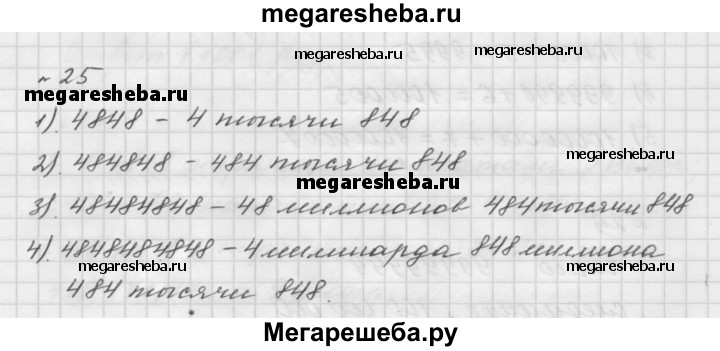 megaresheba.ru
megaresheba.ru
megaresheba.ru
№ 25
megaresheba.ru
1). 4848 - 4 тысячи 848
2). 484848 - 484 тысячи 848
megaresheba.ru
megaresheba.ru
3). 48484848 - 48 миллионов 484 тысячи 848
4). 4848484848 - 4 миллиарда 848 миллиона
megaresheba.ru
megaresheba.ru
484 тысячи 848.
Мегарешеба.ру